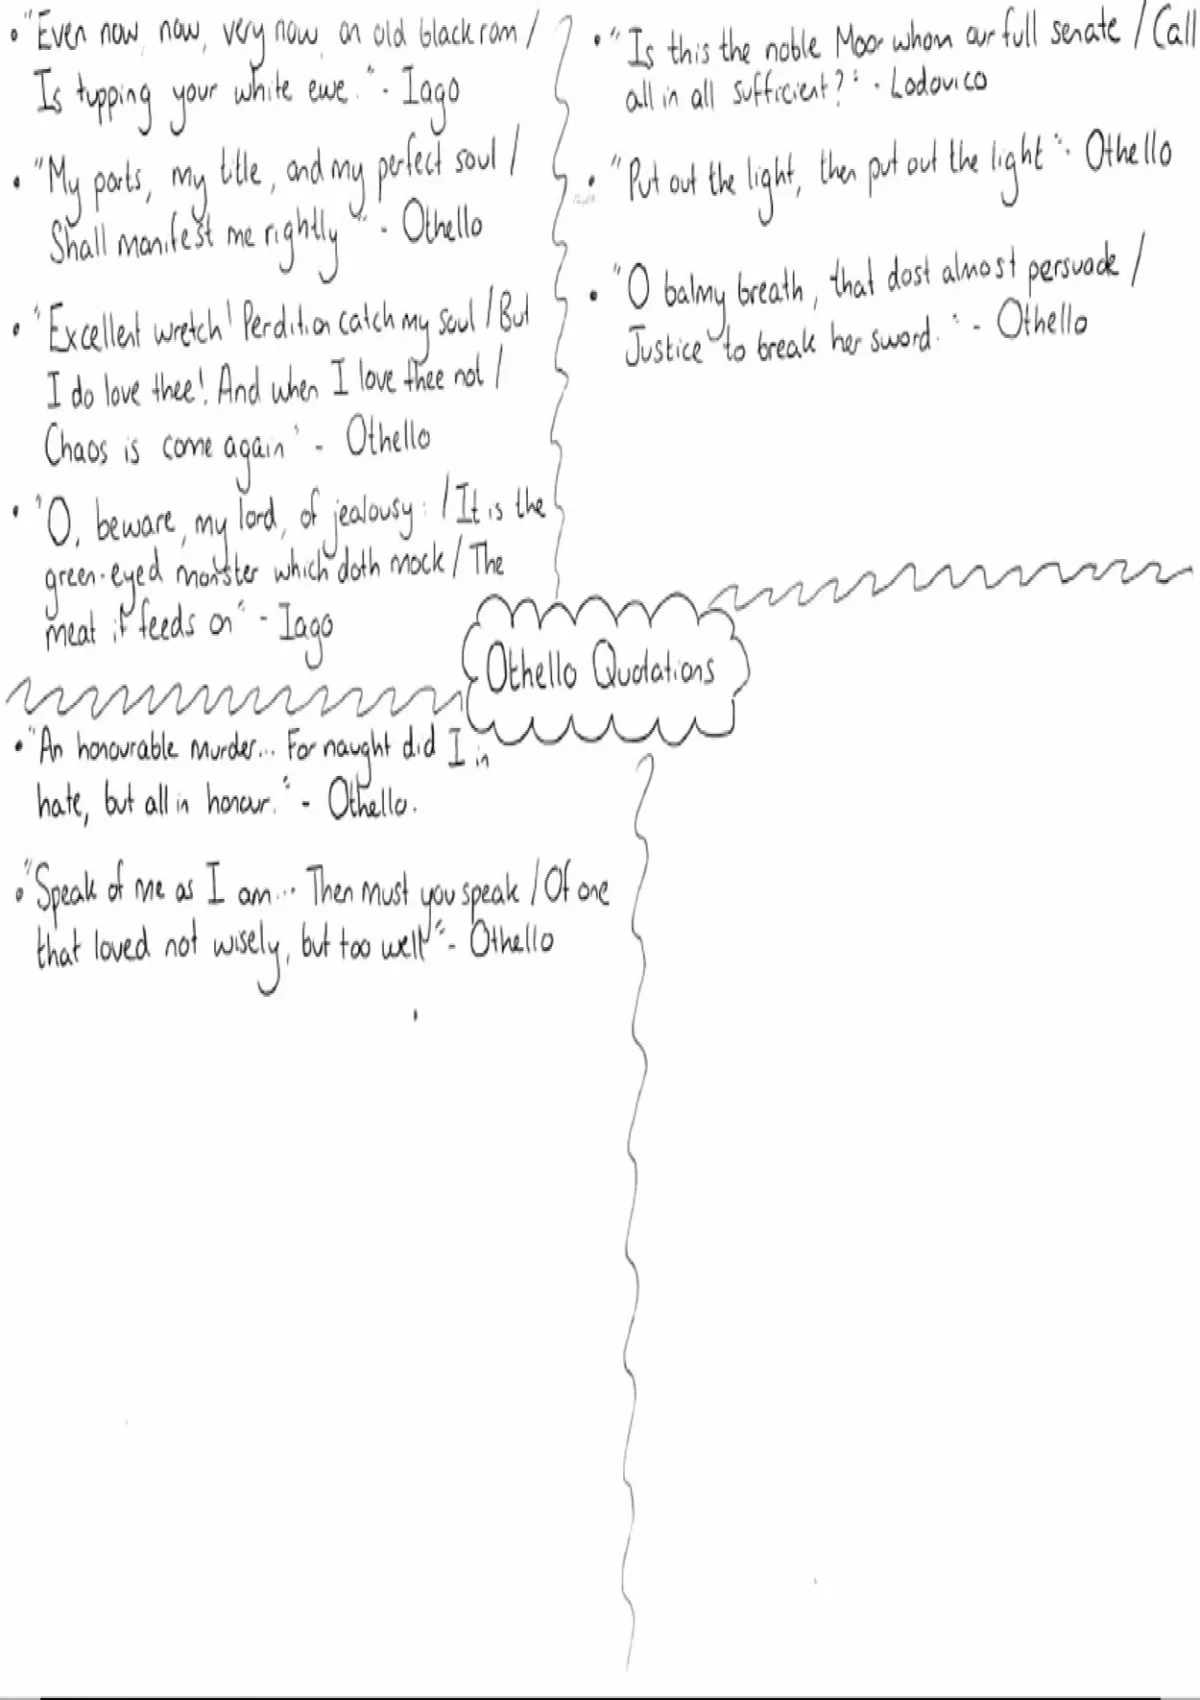 • "Even now, now, very now, an old black ram /
Is tupping your white ewe." - Iago
• "My parts, my title, and my perfect soul /
Shall manifest me rightly" - Othello
• "Excellent wretch! Perdition catch my soul / But
I do love thee! And when I love thee not /
Chaos is come again" - Othello
• "O, beware, my lord, of jealousy: / It is the
green-eyed monster which doth mock / The
meat it feeds on" - Iago
• "Is this the noble Moor whom our full senate / Call
all in all sufficient?" - Lodovico
• "Put out the light, then put out the light" - Othello
• "O balmy breath, that dost almost persuade /
Justice to break her sword." - Othello
Othello Quotations
• "An honourable murder... For naught did I in
hate, but all in honour." - Othello.
• "Speak of me as I am... Then must you speak / Of one
that loved not wisely, but too well" - Othello